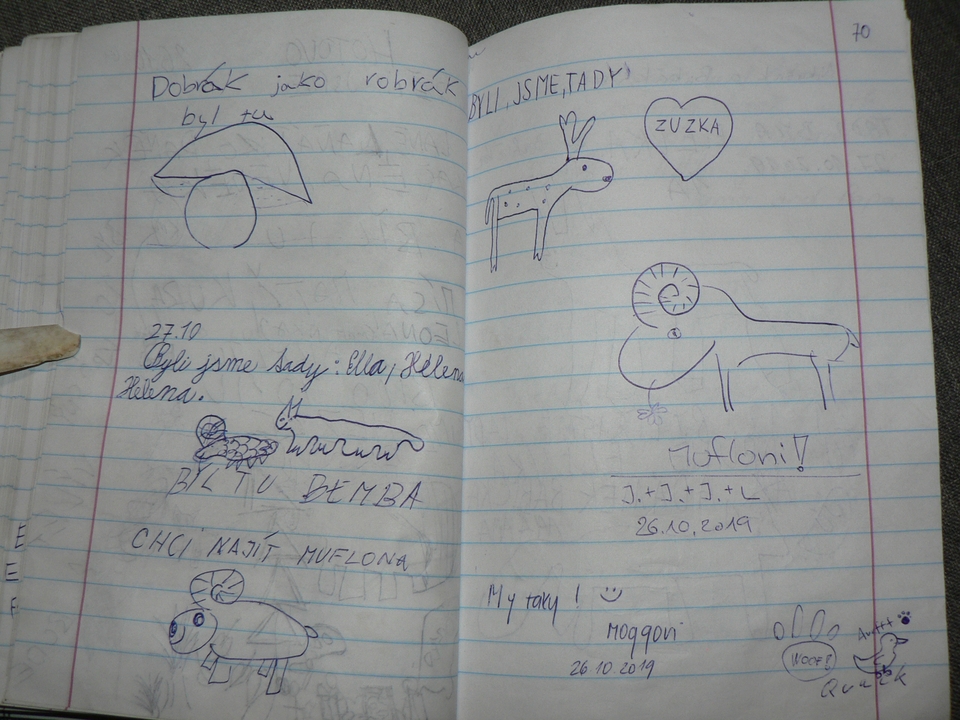 Dobrák jako robrák
byl tu
27.10
Byli jsme tady: Ella, Helena
Helena.
BYL TU BEMBA
CHCI NAJÍT MUFLONA
70
BYLI JSME TADY
ZUZKA
Mufloni!
J.+J.+J.+L
26.10.2019
My taky! 
Moggovi
26 10 2019
WOOF!
Quack
E
E
F